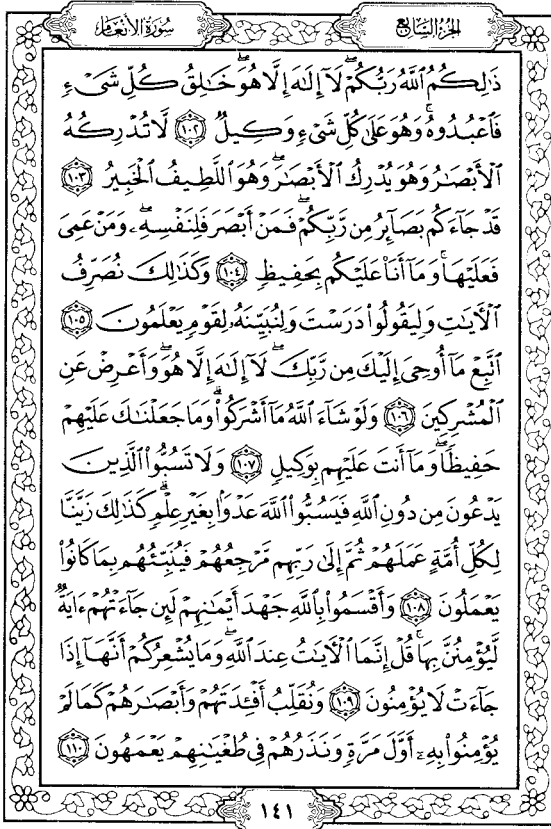 سُورَةُ الأَنْعَامِ
الجُزْءُ السَّابِعُ
ذَٰلِكُمُ ٱللَّهُ رَبُّكُمْۖ لَآ إِلَٰهَ إِلَّا هُوَۖ خَٰلِقُ كُلِّ شَىْءٍ
فَٱعْبُدُوهُۚ وَهُوَ عَلَىٰ كُلِّ شَىْءٍ وَكِيلٌ ۝١٠٢ لَّا تُدْرِكُهُ
ٱلْأَبْصَٰرُ وَهُوَ يُدْرِكُ ٱلْأَبْصَٰرَۖ وَهُوَ ٱللَّطِيفُ ٱلْخَبِيرُ ۝١٠٣
قَدْ جَآءَكُم بَصَآئِرُ مِن رَّبِّكُمْۖ فَمَنْ أَبْصَرَ فَلِنَفْسِهِۦۖ وَمَنْ عَمِىَ
فَعَلَيْهَاۚ وَمَآ أَنَا۠ عَلَيْكُم بِحَفِيظٍ ۝١٠٤ وَكَذَٰلِكَ نُصَرِّفُ
ٱلْأَيَٰتِ وَلِيَقُولُوا۟ دَرَسْتَ وَلِنُبَيِّنَهُۥ لِقَوْمٍ يَعْلَمُونَ ۝١٠٥
ٱتَّبِعْ مَآ أُوحِىَ إِلَيْكَ مِن رَّبِّكَۖ لَآ إِلَٰهَ إِلَّا هُوَۖ وَأَعْرِضْ عَنِ
ٱلْمُشْرِكِينَ ۝١٠٦ وَلَوْ شَآءَ ٱللَّهُ مَآ أَشْرَكُوا۟ۗ وَمَا جَعَلْنَٰكَ عَلَيْهِمْ
حَفِيظًاۖ وَمَآ أَنتَ عَلَيْهِم بِوَكِيلٍ ۝١٠٧ وَلَا تَسُبُّوا۟ ٱلَّذِينَ
يَدْعُونَ مِن دُونِ ٱللَّهِ فَيَسُبُّوا۟ ٱللَّهَ عَدْوًۢا بِغَيْرِ عِلْمٍۗ كَذَٰلِكَ زَيَّنَّا
لِكُلِّ أُمَّةٍ عَمَلَهُمْ ثُمَّ إِلَىٰ رَبِّهِم مَّرْجِعُهُمْ فَيُنَبِّئُهُم بِمَا كَانُوا۟
يَعْمَلُونَ ۝١٠٨ وَأَقْسَمُوا۟ بِٱللَّهِ جَهْدَ أَيْمَٰنِهِمْ لَئِن جَآءَتْهُمْ ءَايَةٌ
لَّيُؤْمِنُنَّ بِهَاۚ قُلْ إِنَّمَا ٱلْأَيَٰتُ عِندَ ٱللَّهِۖ وَمَا يُشْعِرُكُمْ أَنَّهَآ إِذَا
جَآءَتْ لَا يُؤْمِنُونَ ۝١٠٩ وَنُقَلِّبُ أَفْـِٔدَتَهُمْ وَأَبْصَٰرَهُمْ كَمَا لَمْ
يُؤْمِنُوا۟ بِهِۦٓ أَوَّلَ مَرَّةٍ وَنَذَرُهُمْ فِى طُغْيَٰنِهِمْ يَعْمَهُونَ ۝١١٠
١٤١